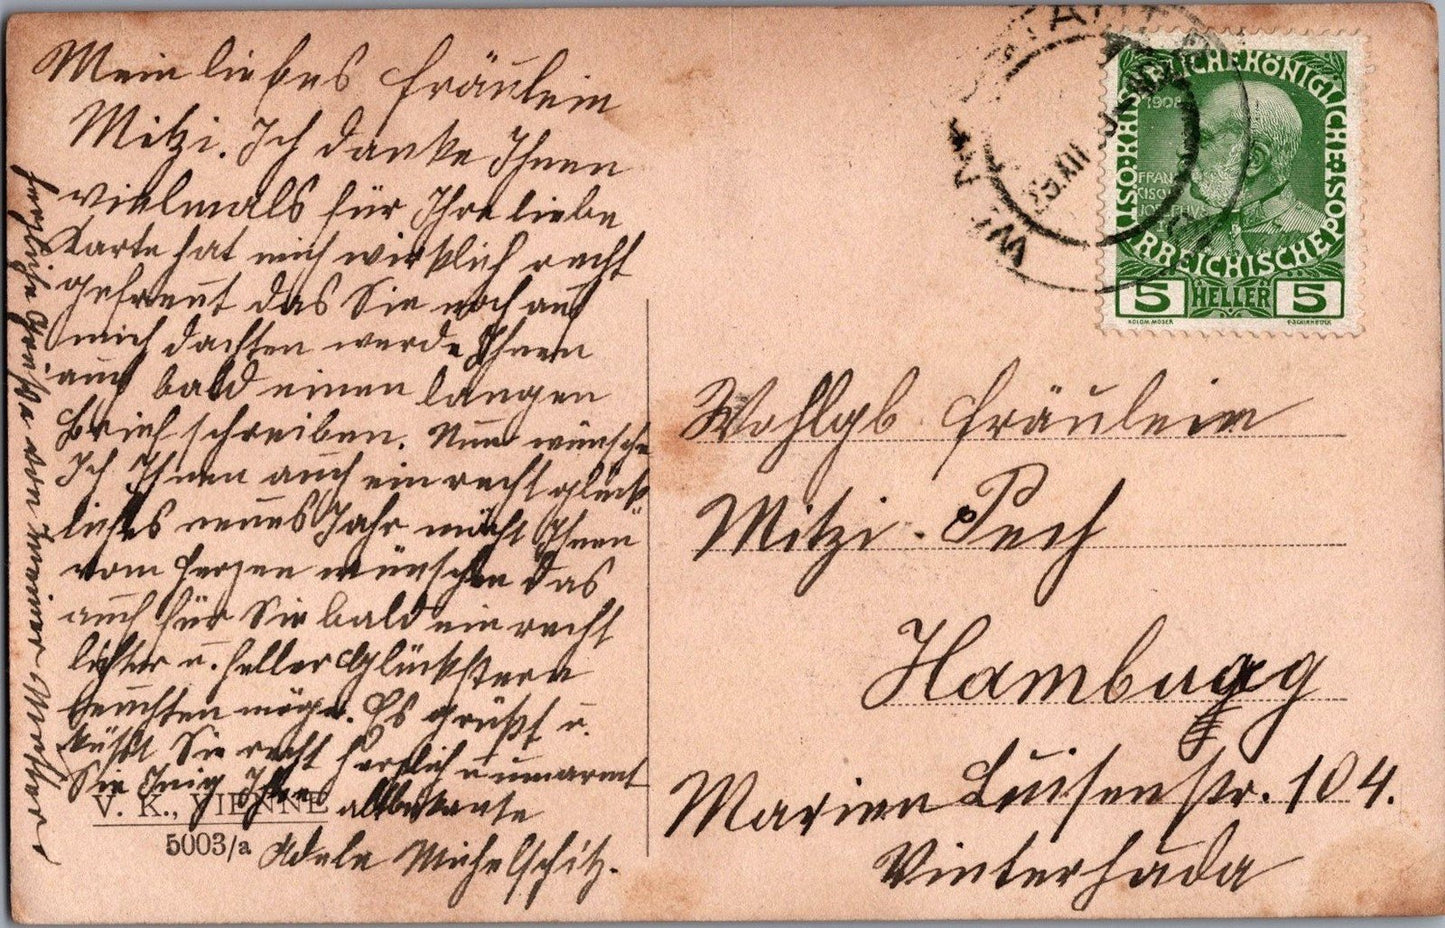 Mein liebes Fräulein
Mitzi. Ich danke Ihnen
vielmals für Ihre liebe
Karte hat mich wirklich recht
gefreut das Sie noch auf
mich dachten werde Ihnen
auch bald einen langen
Brief schreiben. Nun wünsche
Ich Ihnen auch ein recht glück
liches neues Jahr möcht Ihnen
vom Herzen wünschen das
auch für Sie bald ein recht
lichter u. heller Glückstern
leuchten möge. Es grüßt u.
küßt Sie recht herzlich u umarmt
Sie Inig Ihre altbekante
Adele Michelschitz.
herzliche Grüße von Mutter
V. K., VIENNE
5003/a
WIEN
29.XII
KAISERLICHE KÖNIGLICHE ÖSTERREICHISCHE POST
1908
FRANCISCUS JOSEPHUS
5 HELLER 5
KOLOM. MOSER
F. SCHIRNBÖCK
Wohlgb Fräulein
Mitzi. Pech
Hamburg
Marien Luisenstr. 104.
Winterhuda